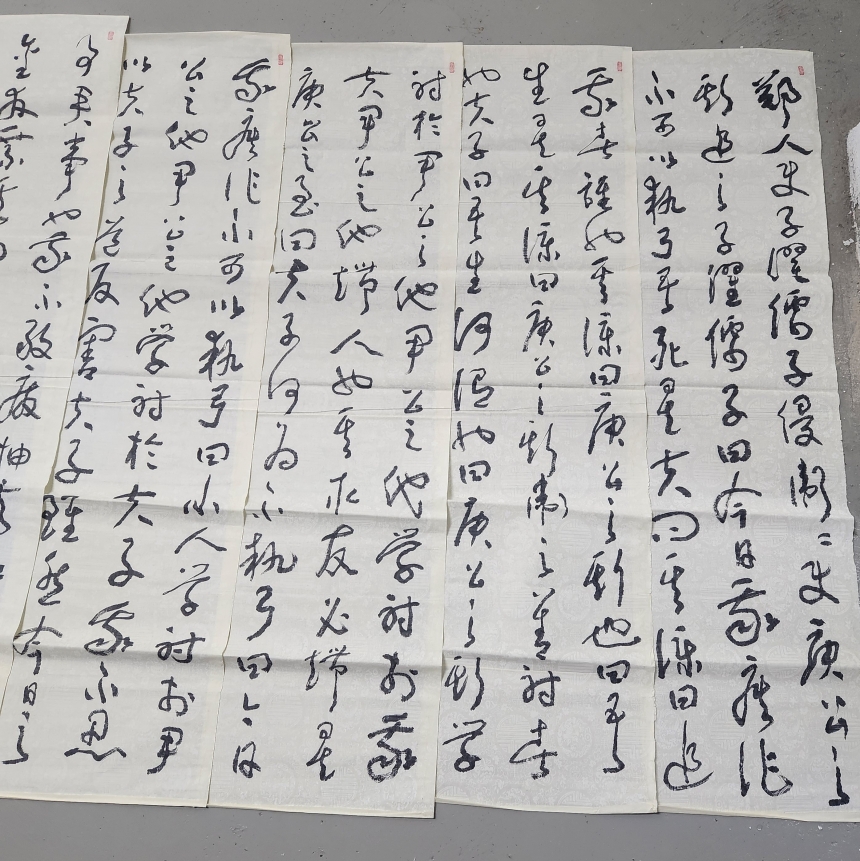 鄭人使子濯孺子侵衛〻使庾公之
斯追之子濯孺子曰今日我疾作
不可以執弓吾死矣夫问其僕曰追
我者誰也其僕曰庾公之斯也曰吾
生矣其僕曰庾公之斯衛之善射者
也夫子曰吾生何謂也曰庾公之斯学
射於尹公之他尹公之他学射於我
夫尹公之他端人也其取友必端矣
庾公之至曰夫子何为不執弓曰今日
我疾作不可以執弓曰小人学射於尹
公之他尹公之他学射於夫子我不忍
以夫子之道反害夫子雖然今日之
事君事也我不敢廢抽矢
金